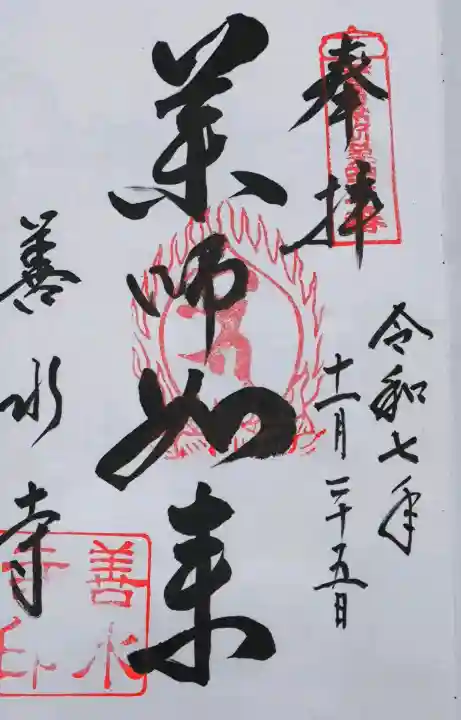 奉拝
令和七年
十一月二十五日
薬師如来
善水寺
善水
寺印